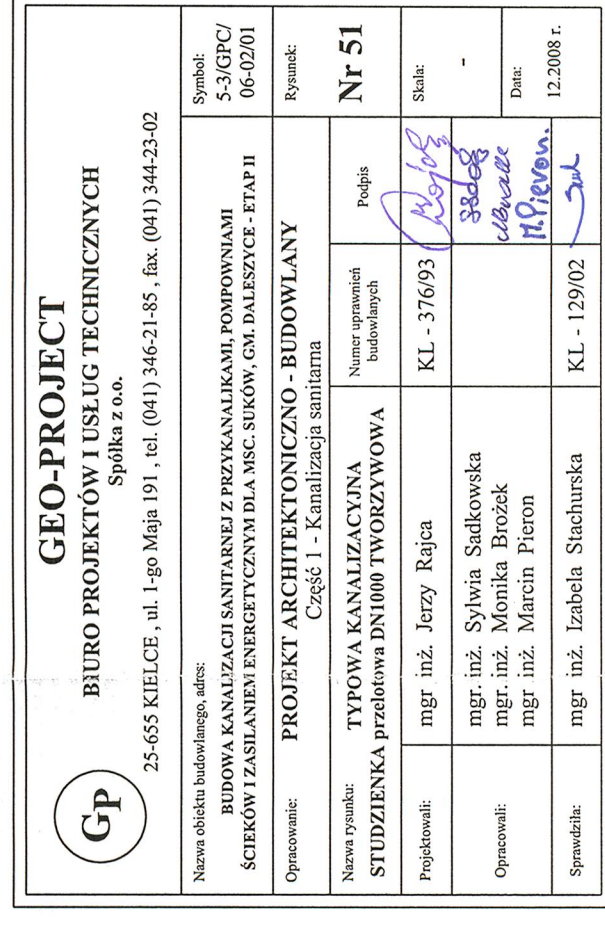 GP
GEO-PROJECT
BIURO PROJEKTÓW I USŁUG TECHNICZNYCH
Spółka z o.o.
25-655 KIELCE , ul. 1-go Maja 191 , tel. (041) 346-21-85 , fax. (041) 344-23-02
Nazwa obiektu budowlanego, adres:
BUDOWA KANALIZACJI SANITARNEJ Z PRZYKANALIKAMI, POMPOWNIAMI
ŚCIEKÓW I ZASILANIEM ENERGETYCZNYM DLA MSC. SUKÓW, GM. DALESZYCE - ETAP II
Symbol:
5-3/GPC/
06-02/01
Opracowanie:
PROJEKT ARCHITEKTONICZNO - BUDOWLANY
Część 1 - Kanalizacja sanitarna
Rysunek:
Nr 51
Nazwa rysunku:
TYPOWA KANALIZACYJNA
STUDZIENKA przelotowa DN1000 TWORZYWOWA
Numer uprawnień
budowlanych
Podpis
Projektowali:
mgr inż. Jerzy Rajca
KL - 376/93
Skala:
-
Opracowali:
mgr. inż. Sylwia Sadkowska
mgr. inż. Monika Brożek
mgr inż. Marcin Pieron
M.Pieron.
Data:
12.2008 r.
Sprawdziła:
mgr inż. Izabela Stachurska
KL - 129/02